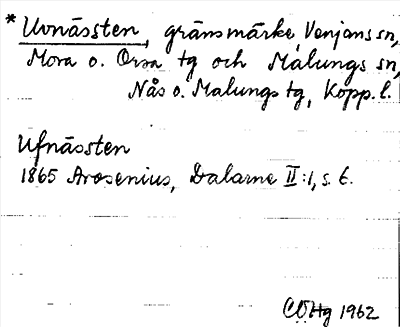 * Uvnässten, gränsmärke, Venjans sn,
Mora o. Orsa tg och Malungs sn,
Nås o. Malungs tg, Kopp. l.
Ufnässten
1865 Arosenius, Dalarne II:1, s. 6.
CÖHg 1962